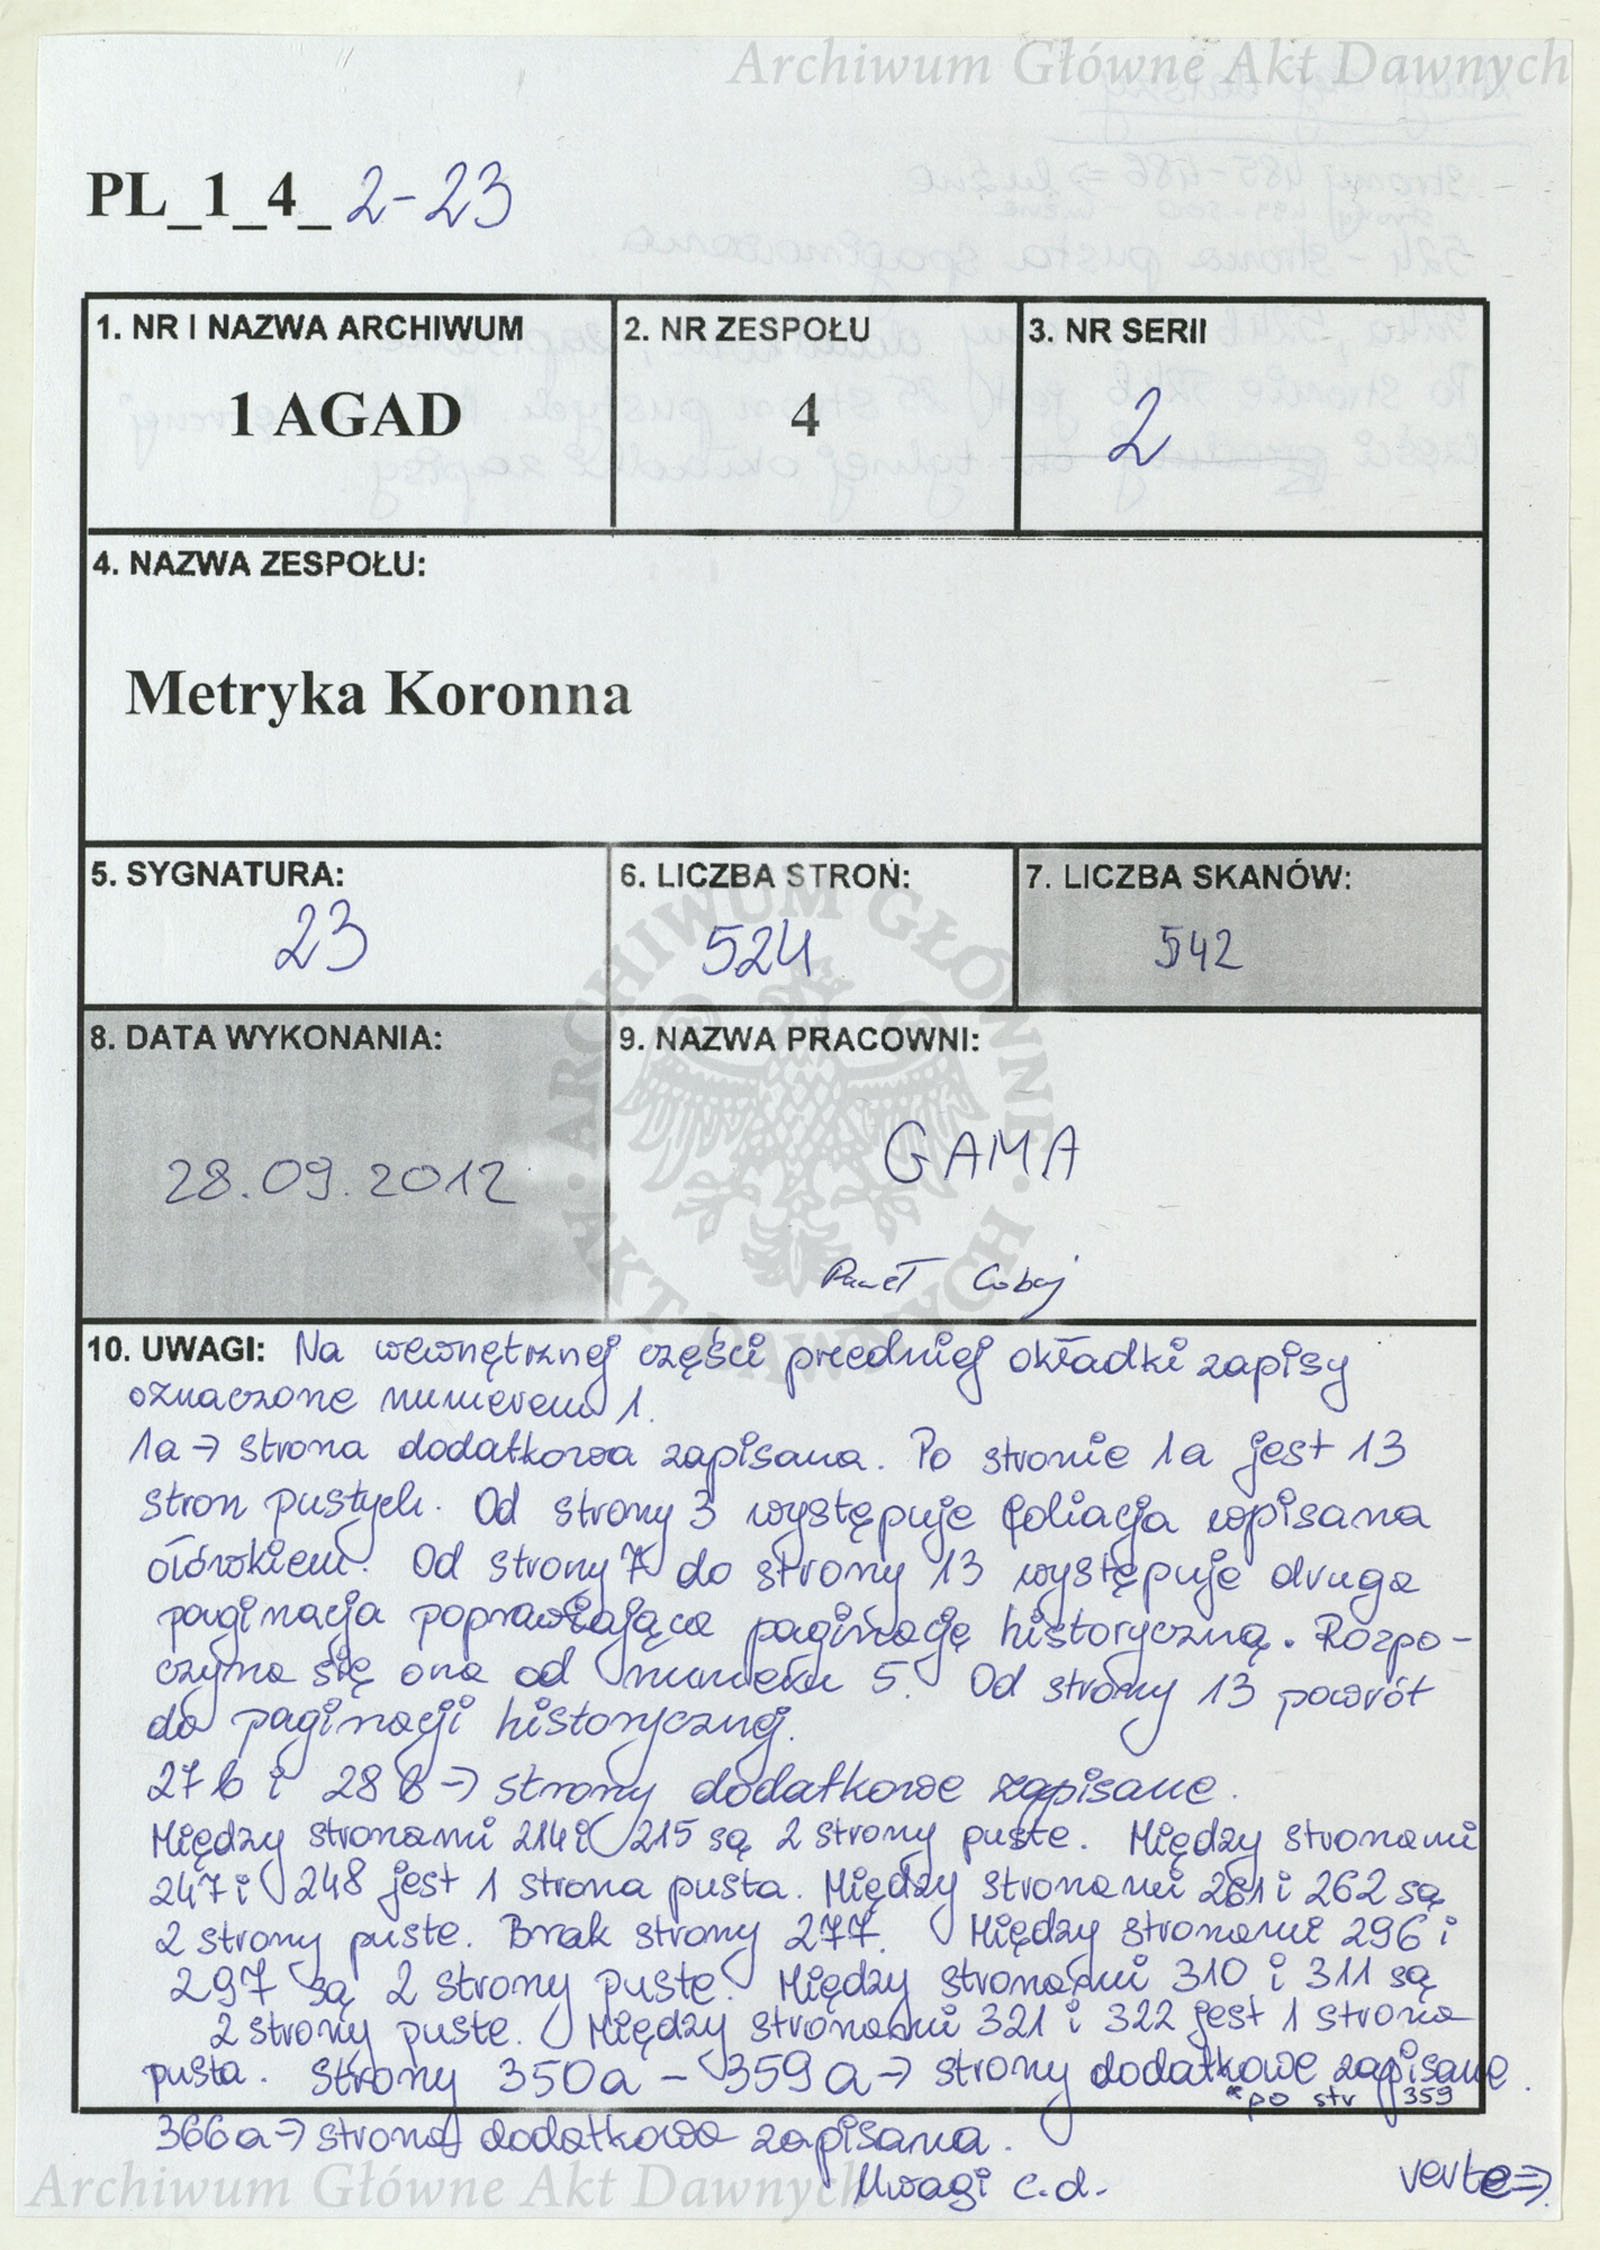 Archiwum Główne Akt Dawnych
PL_1_4_2-23
1. NR I NAZWA ARCHIWUM
1 AGAD
2. NR ZESPOŁU
4
3. NR SERII
2
4. NAZWA ZESPOŁU:
Metryka Koronna
5. SYGNATURA:
23
6. LICZBA STRON:
524
7. LICZBA SKANÓW:
542
8. DATA WYKONANIA:
28.09.2012
9. NAZWA PRACOWNI:
GAMA
Paweł
ARCHIWUM GŁÓWNE AKT DAWNYCH
10. UWAGI: Na wewnętrznej części przedniej okładki zapisy
oznaczone numerem 1.
1a → strona dodatkowa zapisana. Po stronie 1a jest 13
stron pustych. Od strony 3 występuje foliacja wpisana
ołówkiem. Od strony 7 do strony 13 występuje druga
paginacja poprawiająca paginację historyczną. Rozpo-
czyna się ona od numeru 5. Od strony 13 powrót
do paginacji historycznej.
27b i 28b → strony dodatkowe zapisane.
Między stronami 214 i 215 są 2 strony puste. Między stronami
247 i 248 jest 1 strona pusta. Między stronami 261 i 262 są
2 strony puste. Brak strony 277. Między stronami 296 i
297 są 2 strony puste. Między stronami 310 i 311 są
2 strony puste. Między stronami 321 i 322 jest 1 strona
pusta. Strony 350a - 359a → strony dodatkowe zapisane.
*po str 359
366a → strona dodatkowa zapisana.
Uwagi c.d. verte ⇒
Archiwum Główne Akt Dawnych